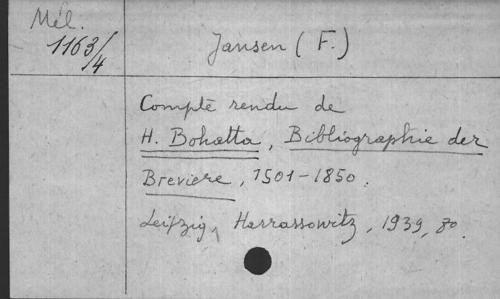 Mél.
1163/4
Jansen (F.)
Compte rendu de
H. Bohatta, Bibliographie der
Breviere, 1501-1850.
Leipzig, Harrassowitz, 1939, 8o.